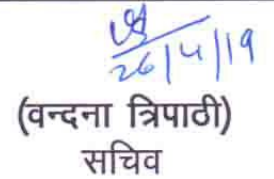 26/4/19
(वन्दना त्रिपाठी)
सचिव